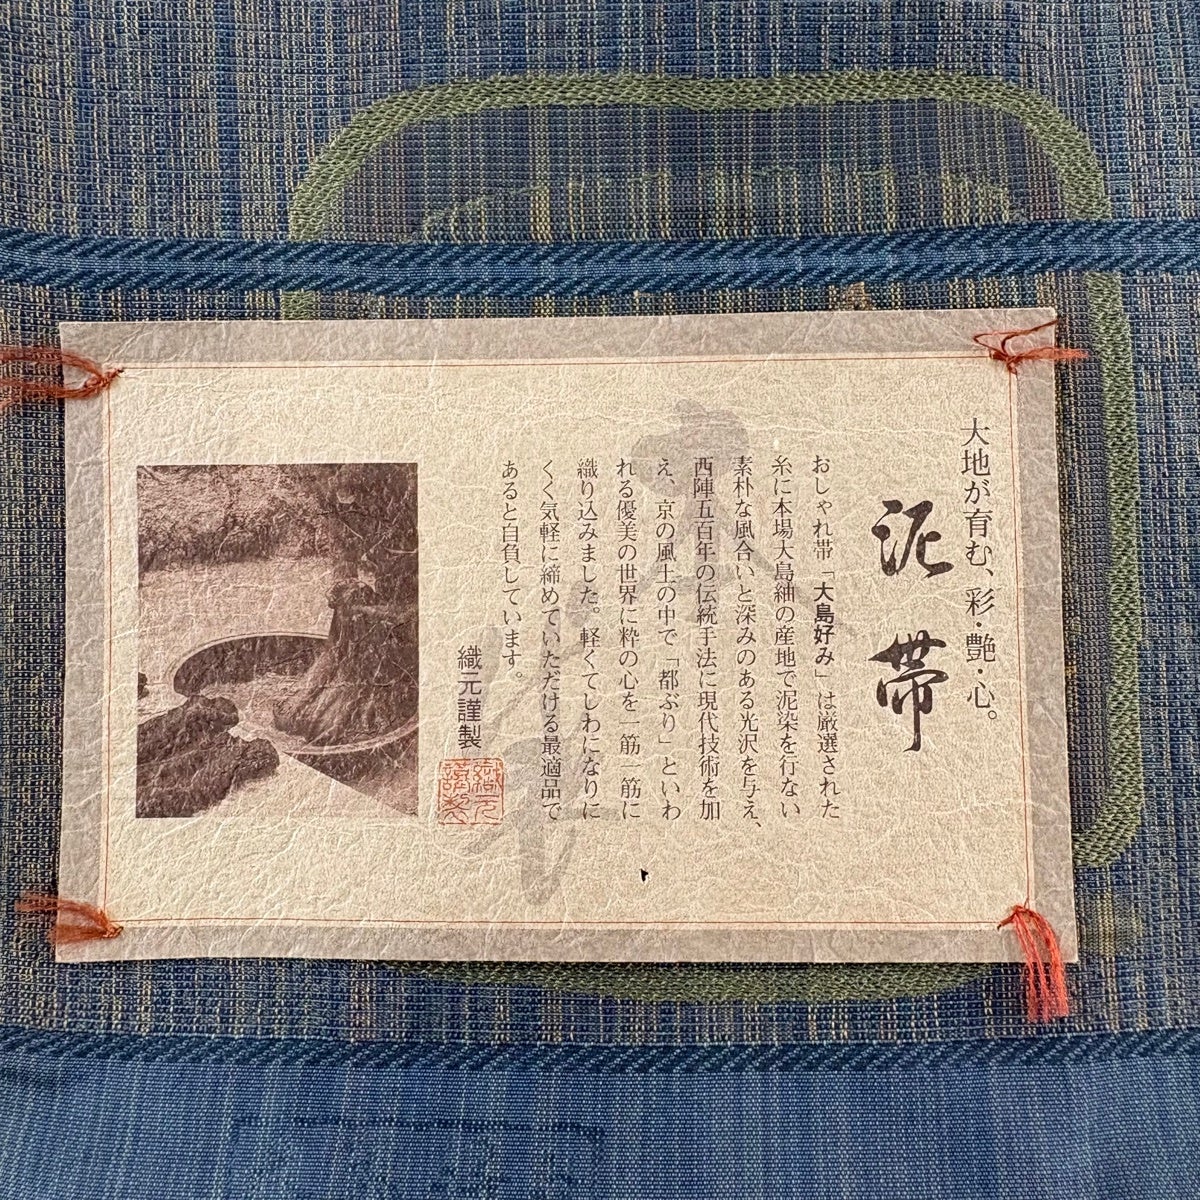 大地が育む、彩・艶・心。
泥帯
おしゃれ帯「大島好み」は厳選された
糸に本場大島紬の産地で泥染を行ない
素朴な風合いと深みのある光沢を与え、
西陣五百年の伝統手法に現代技術を加
え、京の風土の中で「都ぶり」といわ
れる優美の世界に粋の心を一筋一筋に
織り込みました。軽くてしわになりに
くく気軽に締めていただける最適品で
あると自負しています。
織元謹製
織元
謹製